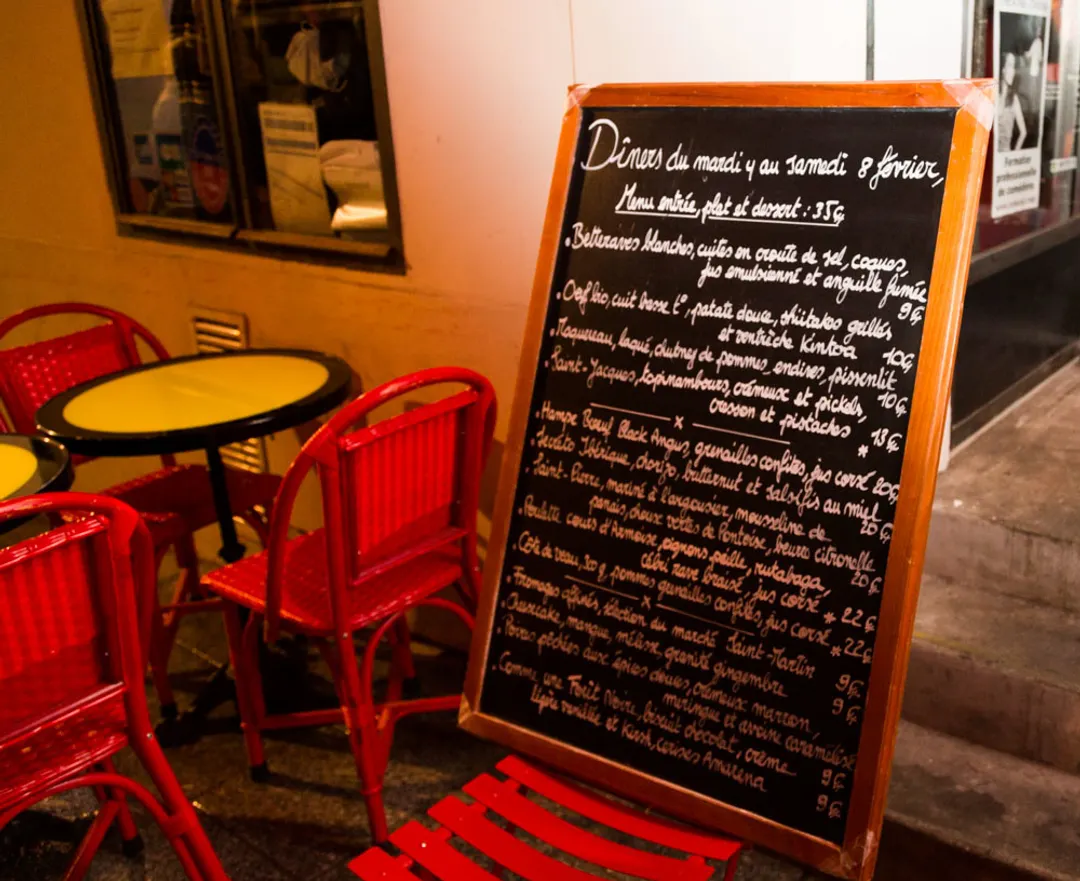 Dîners du mardi 4 au samedi 8 février,
Menu entrée, plat et dessert : 35€
• Betteraves blanches, cuites en croute de sel, coques,
jus emulsionné et anguille fumée
9€
• Oeuf bio, cuit basse t°, patate douce, shiitakes grillés
et ventrèche Kintoa 10€
• Maquereau, laqué, chutney de pommes, endives, pissenlit
10€
• Saint-Jacques, topinambours, crémeux et pickels,
cresson et pistaches * 13€
x
• Hampe Boeuf Black Angus, grenailles confites, jus corsé 20€
• Secreto Ibérique, chorizo, butternut et salsifis au miel
20€
• Saint-Pierre, mariné à l'argousier, mousseline de
panais, choux vertes de Pontoise, beurre citronelle
20€
• Poulette cours d'Armoise, oignons paille, rutabaga,
céleri rave braisé, jus corsé * 22€
• Côte de veau, 300 g, pommes grenailles confites, jus corsé * 22€
x
• Fromages affinés, sélection du marché Saint-Martin
9€
• Cheesecake, mangue, mélisse, granité gingembre
9€
• Poires pochées aux épices douces, crémeux marron,
meringue et avoine caramélisée
9€
• Comme une Forêt Noire, biscuit chocolat, crème
légère vanille et Kirsh, cerises Amarena
9€
Formation
professionnelle
de comédiens